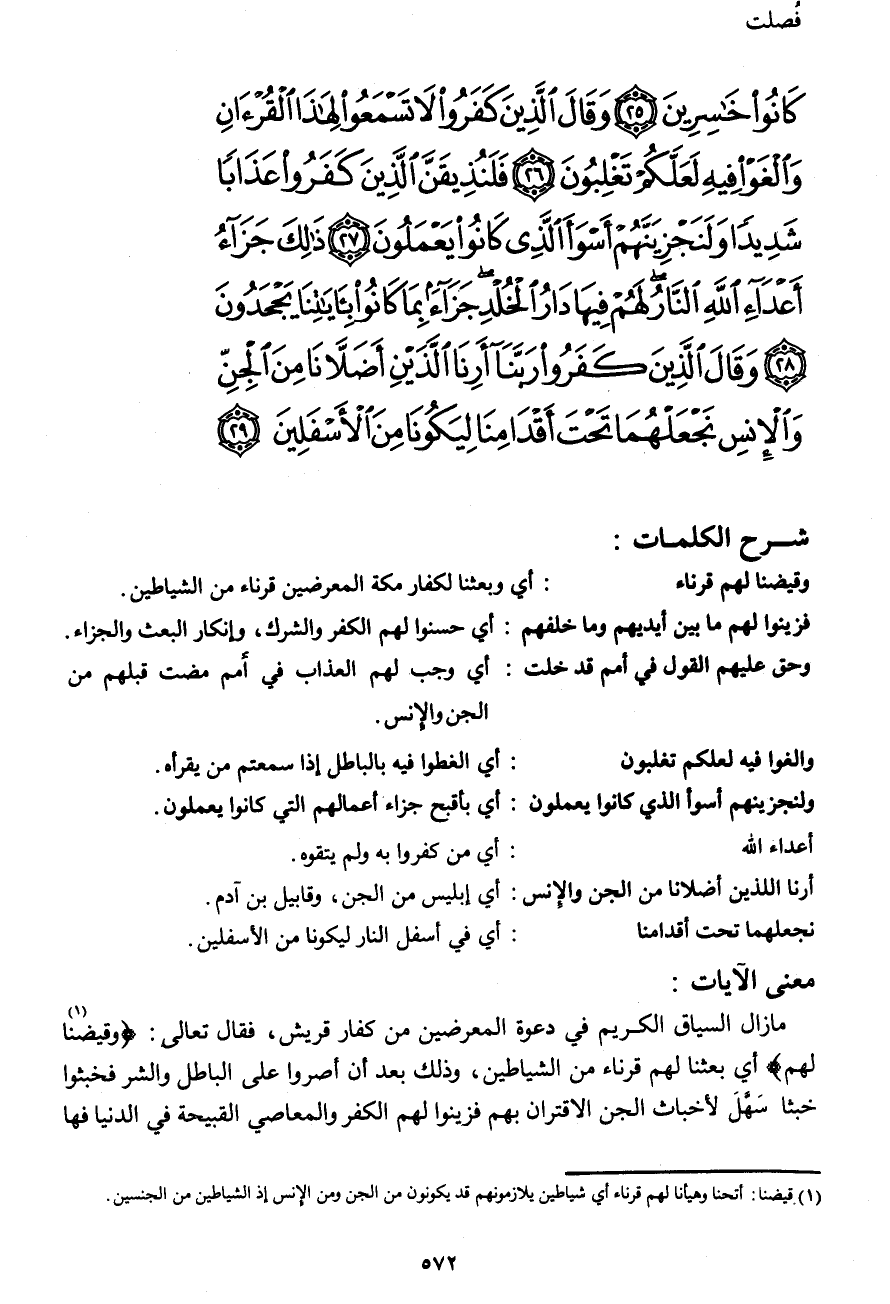 فُصلت
كَانُوا۟ خَـٰسِرِينَ ٢٥ وَقَالَ ٱلَّذِينَ كَفَرُوا۟ لَا تَسْمَعُوا۟ لِهَـٰذَا ٱلْقُرْءَانِ
وَٱلْغَوْا۟ فِيهِ لَعَلَّكُمْ تَغْلِبُونَ ٢٦ فَلَنُذِيقَنَّ ٱلَّذِينَ كَفَرُوا۟ عَذَابًا
شَدِيدًا وَلَنَجْزِيَنَّهُمْ أَسْوَأَ ٱلَّذِى كَانُوا۟ يَعْمَلُونَ ٢٧ ذَٰلِكَ جَزَآءُ
أَعْدَآءِ ٱللَّهِ ٱلنَّارُ ۖ لَهُمْ فِيهَا دَارُ ٱلْخُلْدِ ۖ جَزَآءًۢ بِمَا كَانُوا۟ بِـَٔايَـٰتِنَا يَجْحَدُونَ
٢٨ وَقَالَ ٱلَّذِينَ كَفَرُوا۟ رَبَّنَآ أَرِنَا ٱلَّذَيْنِ أَضَلَّانَا مِنَ ٱلْجِنِّ
وَٱلْإِنسِ نَجْعَلْهُمَا تَحْتَ أَقْدَامِنَا لِيَكُونَا مِنَ ٱلْأَسْفَلِينَ ٢٩
شـــرح الكلمـات :
وقيضنا لهم قرناء : أي وبعثنا لكفار مكة المعرضين قرناء من الشياطين.
فزينوا لهم ما بين أيديهم وما خلفهم : أي حسنوا لهم الكفر والشرك، وإنكار البعث والجزاء.
وحق عليهم القول في أمم قد خلت : أي وجب لهم العذاب في أمم مضت قبلهم من
الجن والإنس.
والغوا فيه لعلكم تغلبون : أي الغطوا فيه بالباطل إذا سمعتم من يقرأه.
ولنجزينهم أسوأ الذي كانوا يعملون : أي بأقبح جزاء أعمالهم التي كانوا يعملون.
أعداء الله : أي من كفروا به ولم يتقوه.
أرنا اللذين أضلانا من الجن والإنس : أي إبليس من الجن، وقابيل بن آدم.
نجعلهما تحت أقدامنا : أي في أسفل النار ليكونا من الأسفلين.
معنى الآيات :
مازال السياق الكريم في دعوة المعرضين من كفار قريش، فقال تعالى : ﴿وقيضنا(١)
لهم﴾ أي بعثنا لهم قرناء من الشياطين، وذلك بعد أن أصروا على الباطل والشر فخبثوا
خبثا سَهَّلَ لأخباث الجن الاقتران بهم فزينوا لهم الكفر والمعاصي القبيحة في الدنيا فها
(١) قيضنا : أتحنا وهيأنا لهم قرناء أي شياطين يلازمونهم قد يكونون من الجن ومن الإنس إذ الشياطين من الجنسين.
٥٧٢